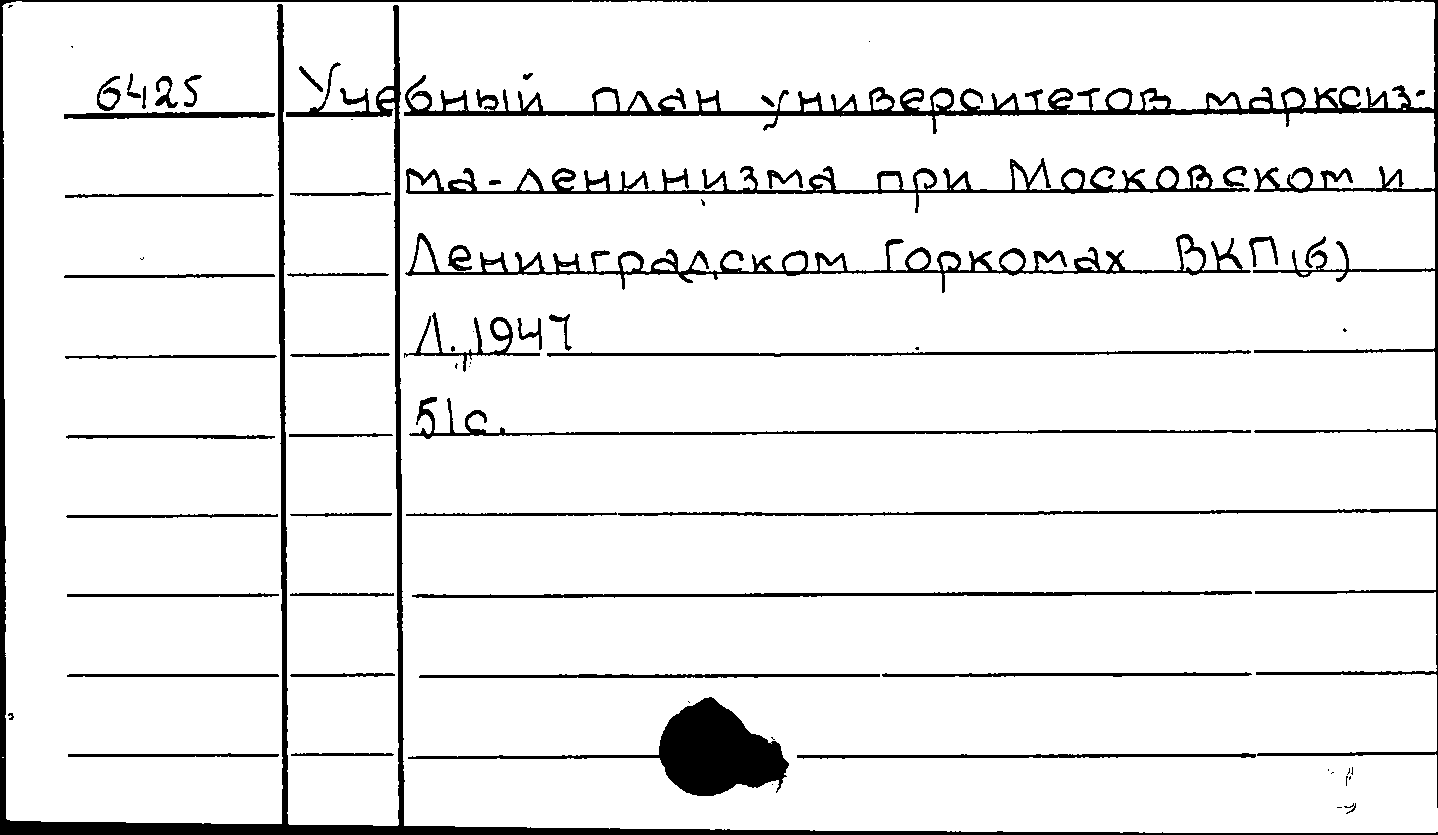 6425 Учебный план университетов марксиз-
ма-ленинизма при Московском и
Ленинградском Горкомах ВКП(б)
Л., 1947
51с.